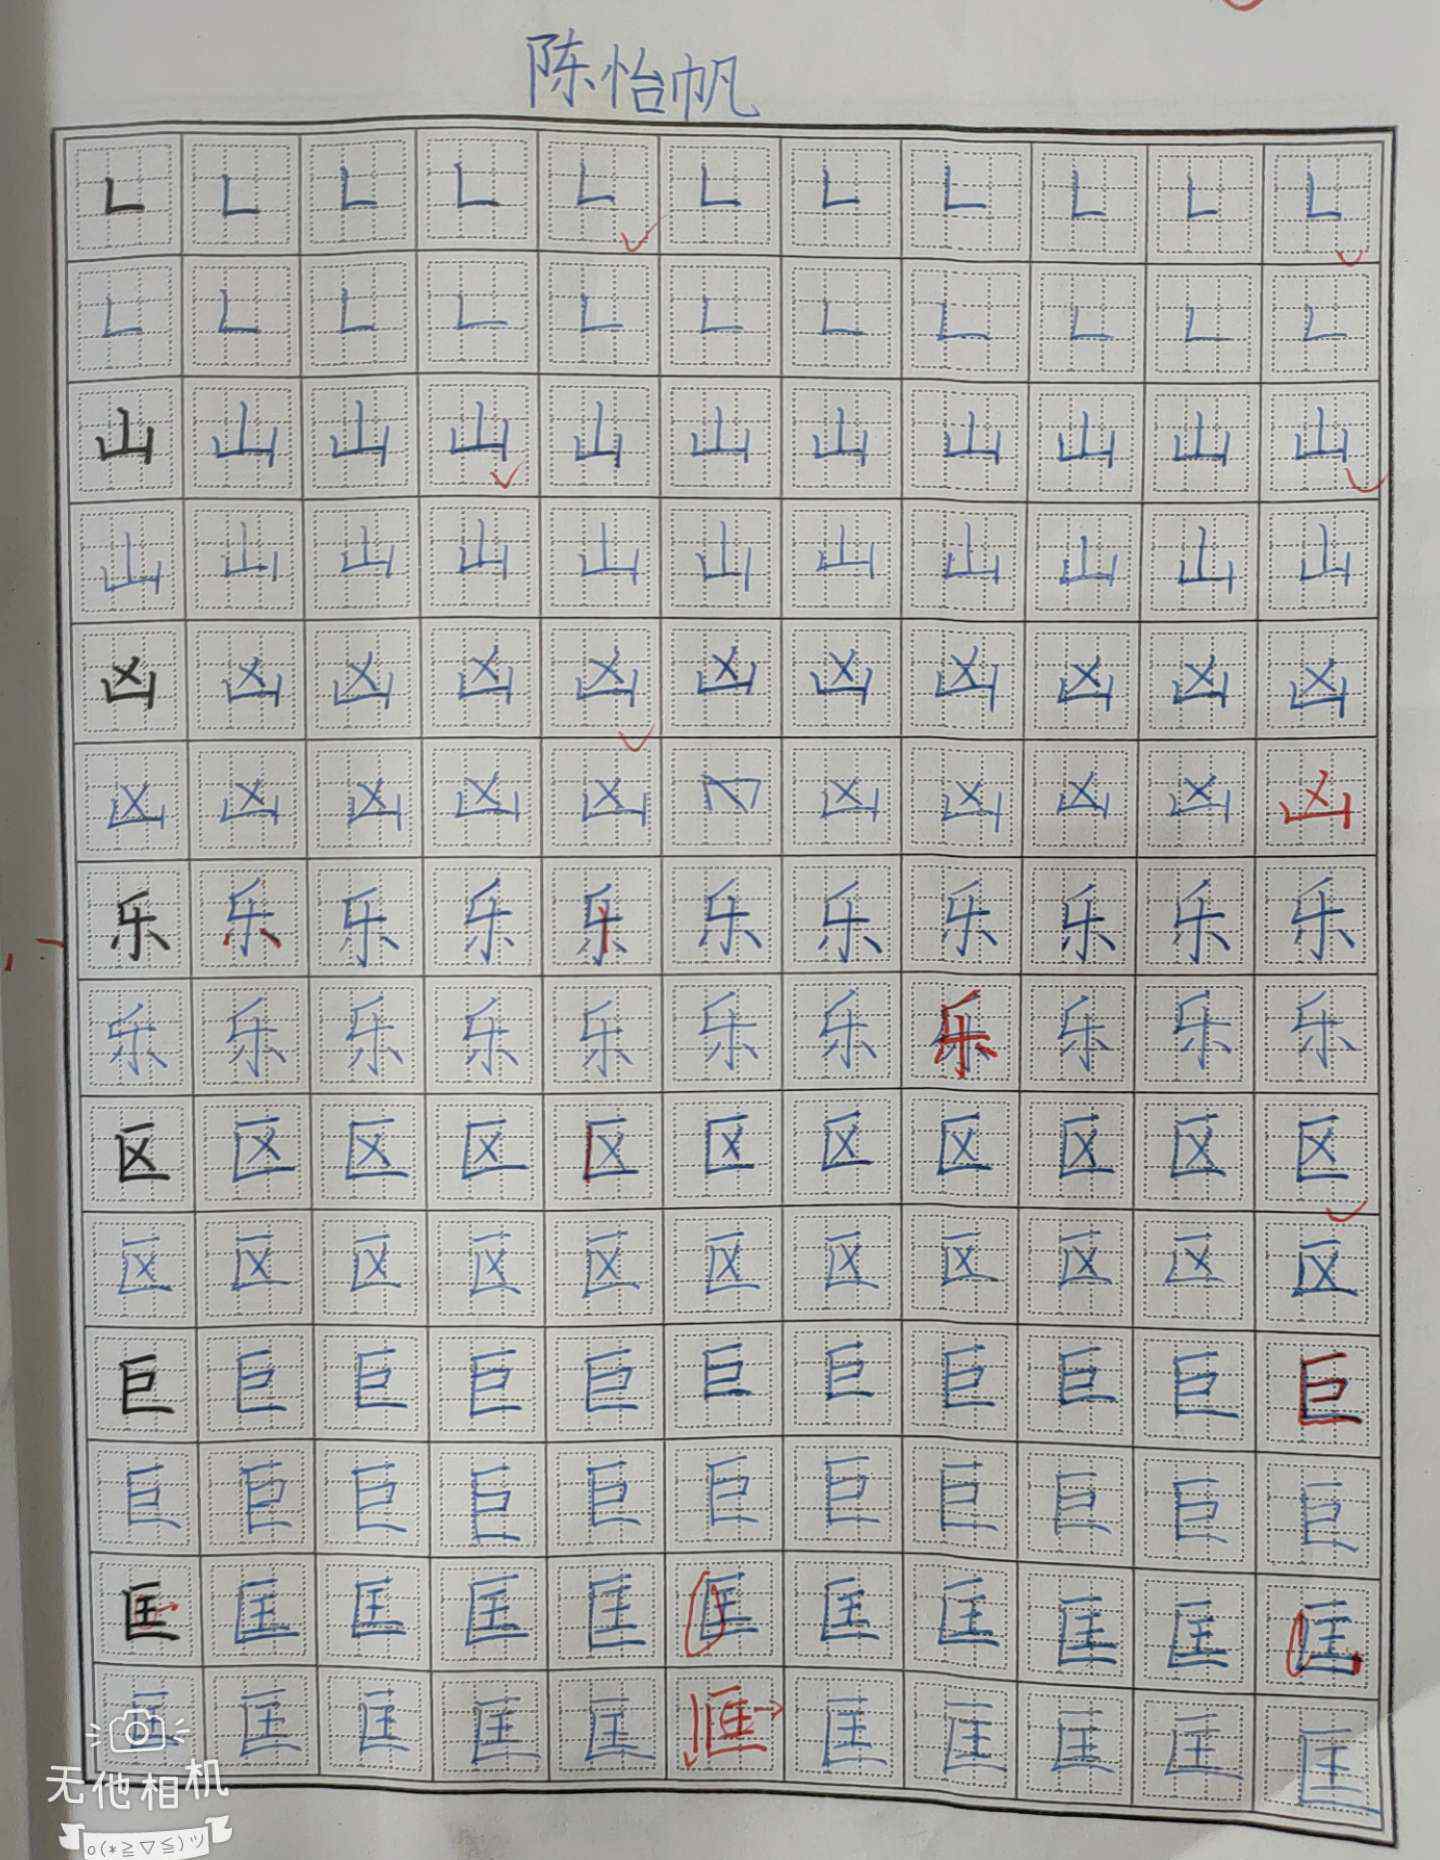 陈怡帆
𠃊 𠃊 𠃊 𠃊 𠃊 𠃊 𠃊 𠃊 𠃊 𠃊 𠃊
𠃊 𠃊 𠃊 𠃊 𠃊 𠃊 𠃊 𠃊 𠃊 𠃊 𠃊
山 山 山 山 山 山 山 山 山 山 山
山 山 山 山 山 山 山 山 山 山 山
凶 凶 凶 凶 凶 凶 凶 凶 凶 凶 凶
凶 凶 凶 凶 凶 凶 凶 凶 凶 凶
乐 乐 乐 乐 乐 乐 乐 乐 乐 乐 乐
乐 乐 乐 乐 乐 乐 乐 乐 乐 乐 乐
区 区 区 区 区 区 区 区 区 区 区
区 区 区 区 区 区 区 区 区 区 区
巨 巨 巨 巨 巨 巨 巨 巨 巨 巨 巨
巨 巨 巨 巨 巨 巨 巨 巨 巨 巨 巨
匡 匡 匡 匡 匡 匡 匡 匡 匡 匡 匡
匡 匡 匡 匡 匡 匡 匡 匡 匡 匡 匡
无他相机
o(*≧▽≦)ツ